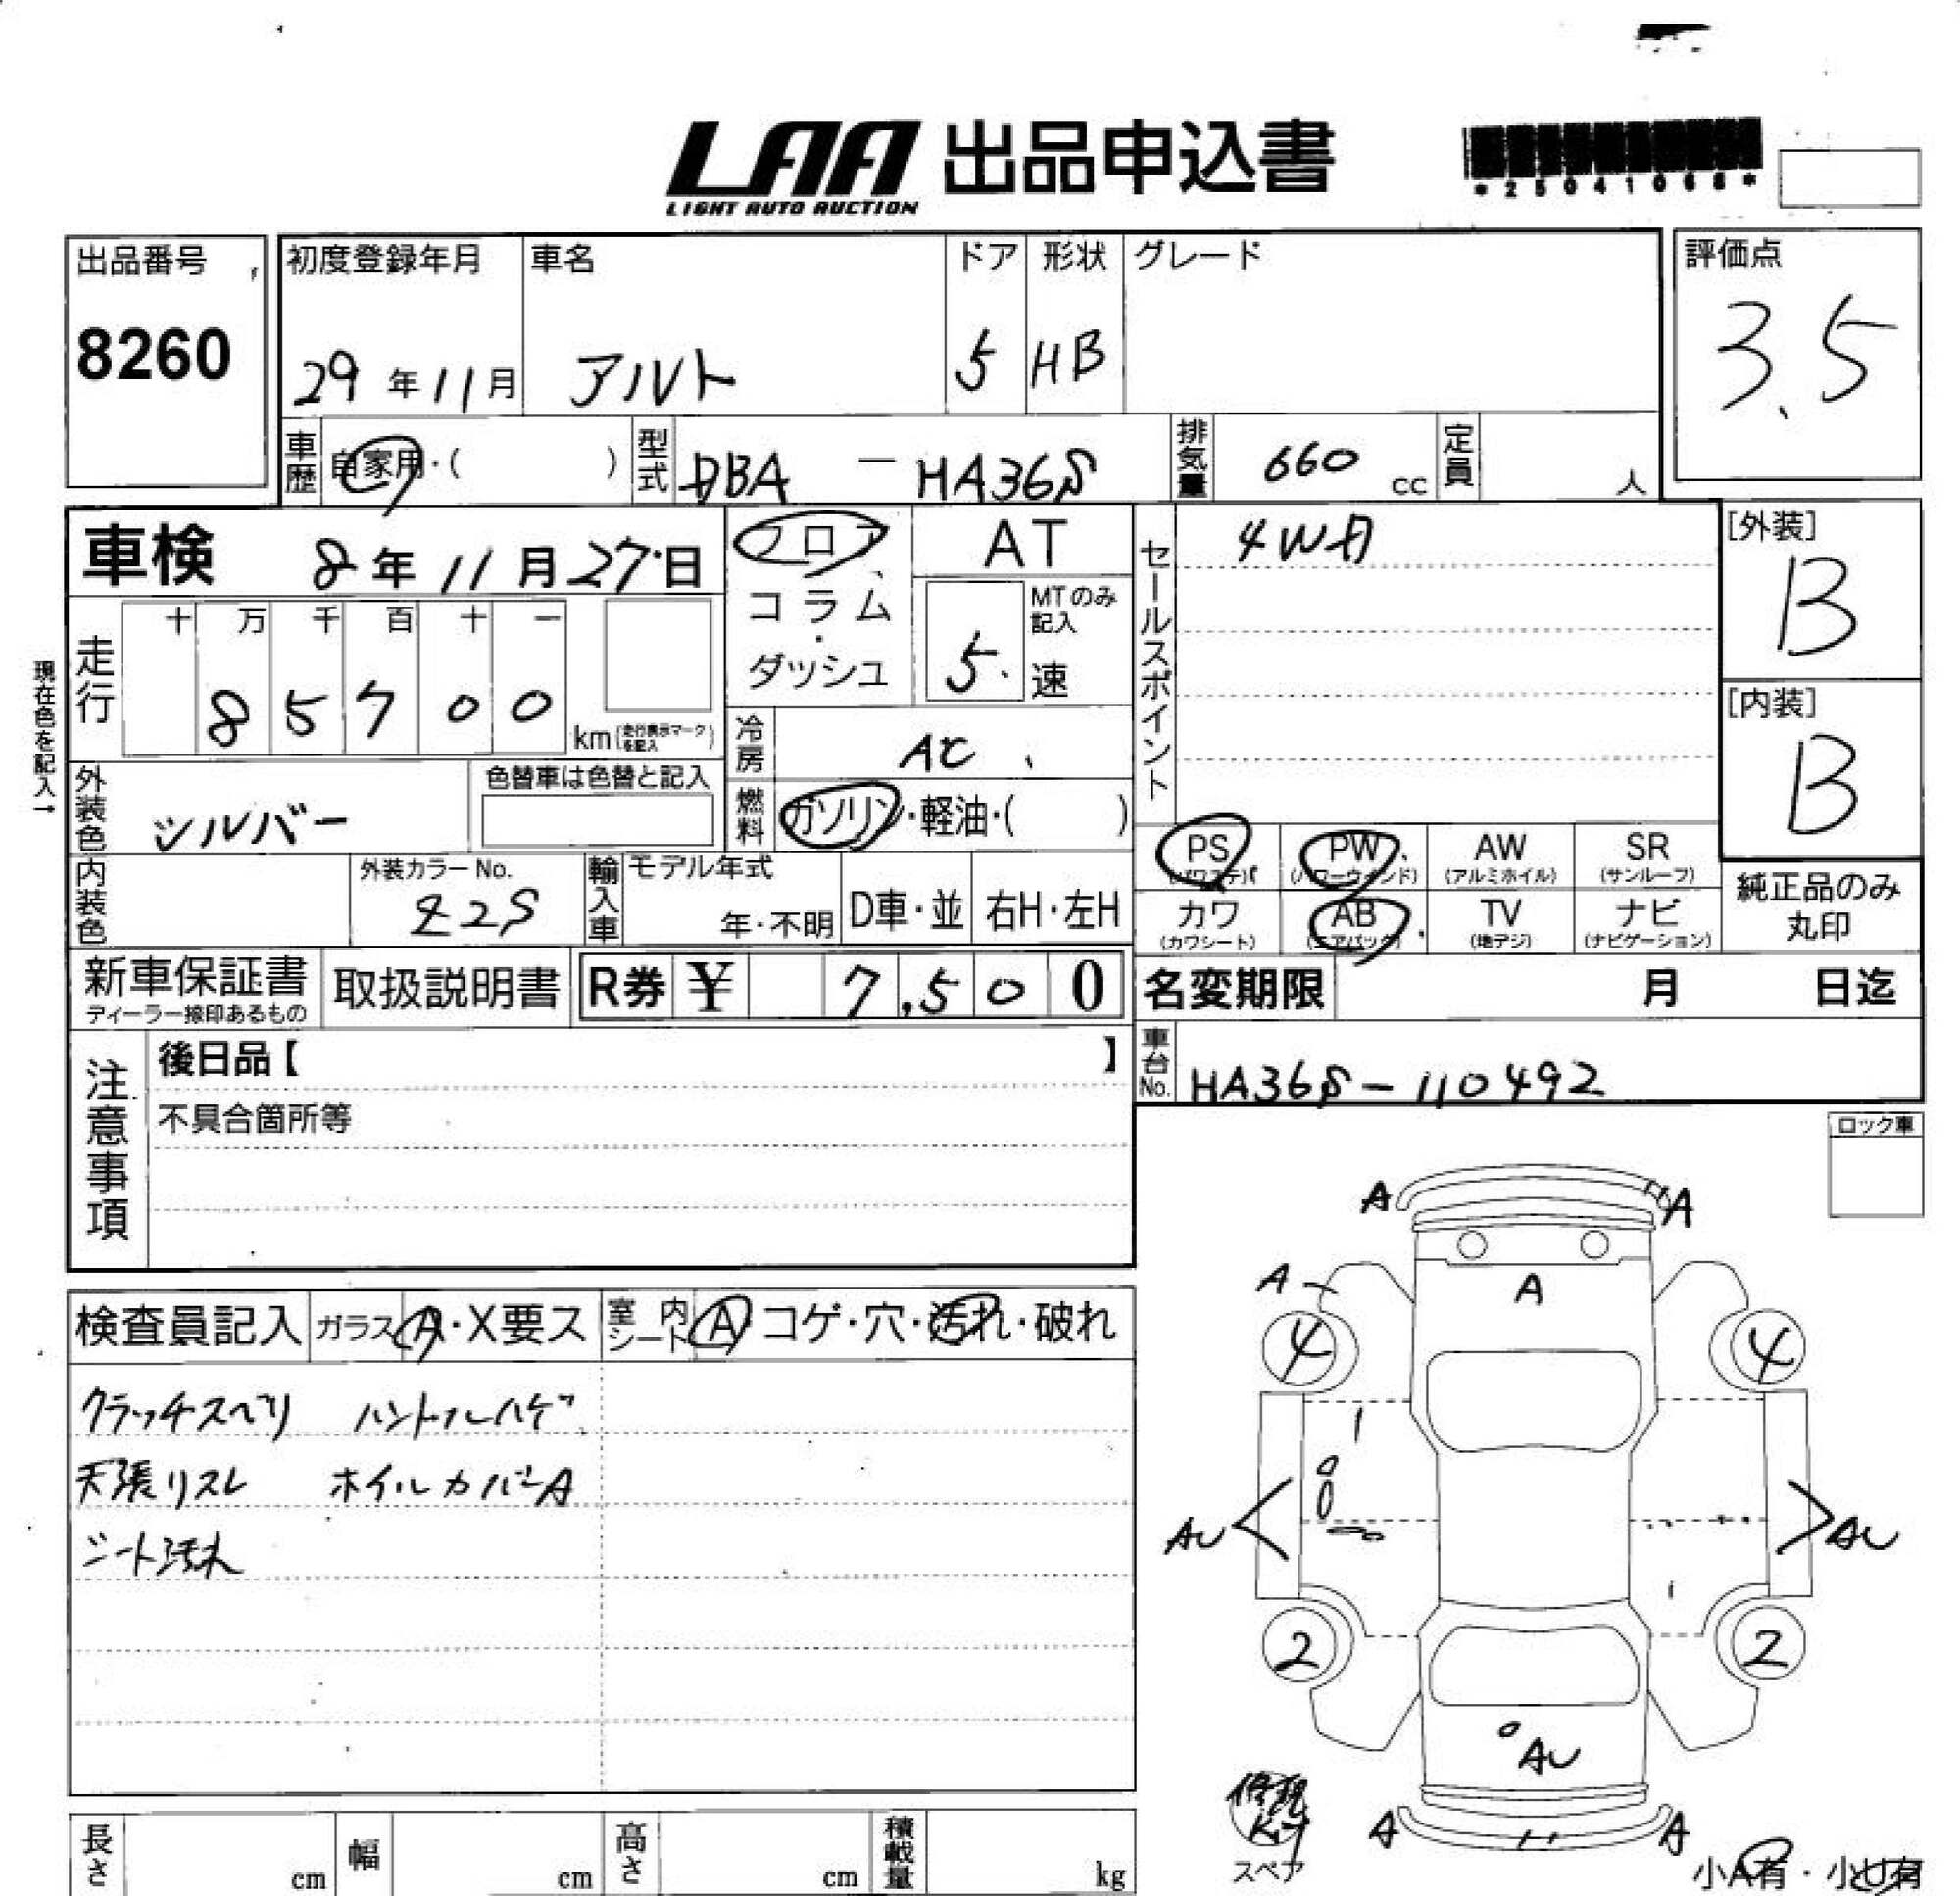 LAA 出品申込書
LIGHT AUTO AUCTION
*25041068*
出品番号
8260
初度登録年月
29年11月
車名
アルト
ドア
5
形状
HB
グレード
評価点
3.5
車歴 自家用・( )
型式 DBA - HA36S
排気量 660 cc
定員 人
車検 8年11月27日
フロア
コラム
・
ダッシュ
AT
MTのみ記入
5 速
セールスポイント
4WD
[外装]
B
[内装]
B
現在色を記入→
走行
十 万 千 百 十 一
8 5 7 0 0
km(走行表示マークを記入)
冷房 AC
燃料 ガソリン・軽油・( )
外装色 シルバー
色替車は色替と記入
内装色
外装カラーNo.
Z2S
輸入車
モデル年式
年・不明
D車・並
右H・左H
PS
(パワステ)
PW
(パワーウィンド)
AW
(アルミホイル)
SR
(サンルーフ)
カワ
(カワシート)
AB
(エアバッグ)
TV
(地デジ)
ナビ
(ナビゲーション)
純正品のみ
丸印
新車保証書
ディーラー捺印あるもの
取扱説明書
R券 ¥ 7,500
名変期限 月 日迄
車台No. HA36S-110492
注意事項
後日品【 】
不具合箇所等
ロック車
検査員記入
ガラス A・X要ス
室内シート A コゲ・穴・汚れ・破れ
クラッチスベリ ハンドルハゲ
天張リスレ ホイルカバーA
シート汚れ
A A
A A
4 4
AU AU
2 2
AU
A A
修理
Kit
スペア
小A有・小U有
長さ cm
幅 cm
高さ cm
積載量 kg